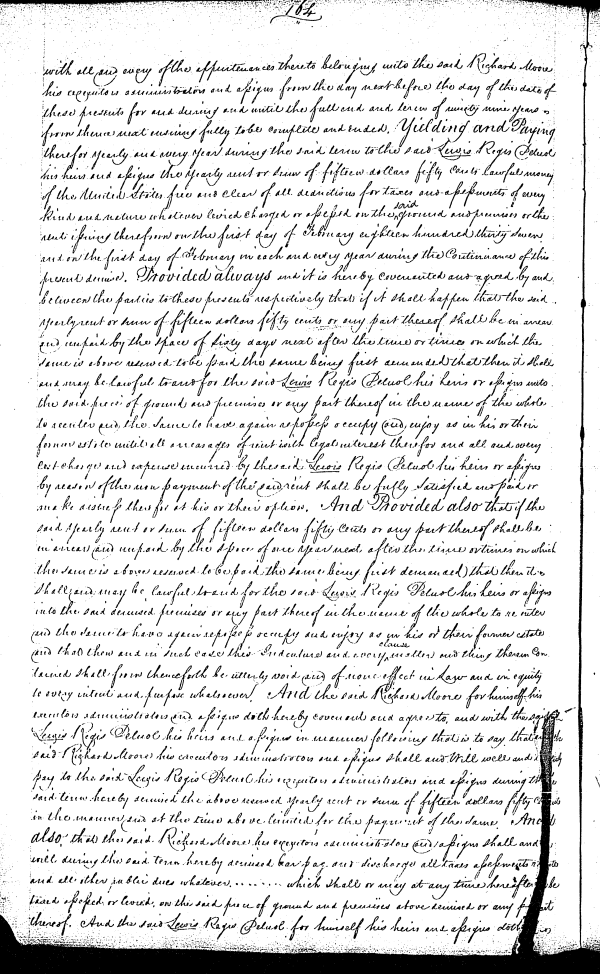 164
with all and every of the appurtenances thereto belonging unto the said Richard Moore
his executors administrators and assigns from the day next before the day of the date of
these presents for and during and until the full end and term of ninety nine years
from thence next ensuing fully to be complete and ended. Yielding and Paying
therefor yearly and every year during the said term to the said Lewis Regis
his heirs and assigns the yearly rent or sum of fifteen dollars fifty cents lawful money
of the United States free and clear of all deductions for taxes and assessments of every
kind and nature whatever levied charged or assessed on the said ground and premises or the
rent issuing therefrom on the first day of February eighteen hundred thirty seven
and on the first day of February in each and every year during the Continuance of this
present demise. Provided always and it is hereby covenanted and agreed by and
between the parties to these presents respectively that if it shall happen that the said
yearly rent or sum of fifteen dollars fifty cents or any part thereof shall be in arrear
and unpaid by the space of sixty days next after the time or times on which the
same is above reserved to be paid the same being first demanded that then it shall
and may be lawful to and for the said Lewis Regis his heirs or assigns unto
the said piece of ground and premises or any part thereof in the name of the whole
to reenter and the same to have again repossess occupy and enjoy as in his or their
former estate until all arrearages of rent with legal interest therefor and all and every
cost charge and expense incurred by the said Lewis Regis his heirs or assigns
by reason of the non payment of the said rent shall be fully satisfied and paid or
make distress therefor at his or their option. And Provided also that if the
said yearly rent or sum of fifteen dollars fifty cents or any part thereof shall be
in arrear and unpaid by the space of one year next after the time or times on which
the same is above reserved to be paid (the same being first demanded) that then it
shall and may be lawful to and for the said Lewis Regis his heirs or assigns
into the said demised premises or any part thereof in the name of the whole to re enter
and the same to have again repossess occupy and enjoy as in his or their former estate
and that then and in such case this Indenture and every clause matter and thing therein con
tained shall from thenceforth be utterly void and of none effect in Law and in equity
to every intent and purpose whatsoever. And the said Richard Moore for himself his
executors administrators and assigns doth hereby covenant and agree to and with the said
Lewis Regis his heirs and assigns in manner following that is to say that
said Richard Moore his executors administrators and assigns shall and Will well and
pay to the said Lewis Regis his executors administrators and assigns during the
said term hereby demised the above reserved yearly rent or sum of fifteen dollars fifty cents
in the manner and at the time above limited for the payment of the same. And
also that the said Richard Moore his executors administrators and assigns shall and
will during the said term hereby demised bear pay and discharge all taxes assessments
and all other public dues whatever which shall or may at any time hereafter be
taxed assessed or levied on the said piece of ground and premises above demised or any part
thereof. And the said Lewis Regis for himself his heirs and assigns doth